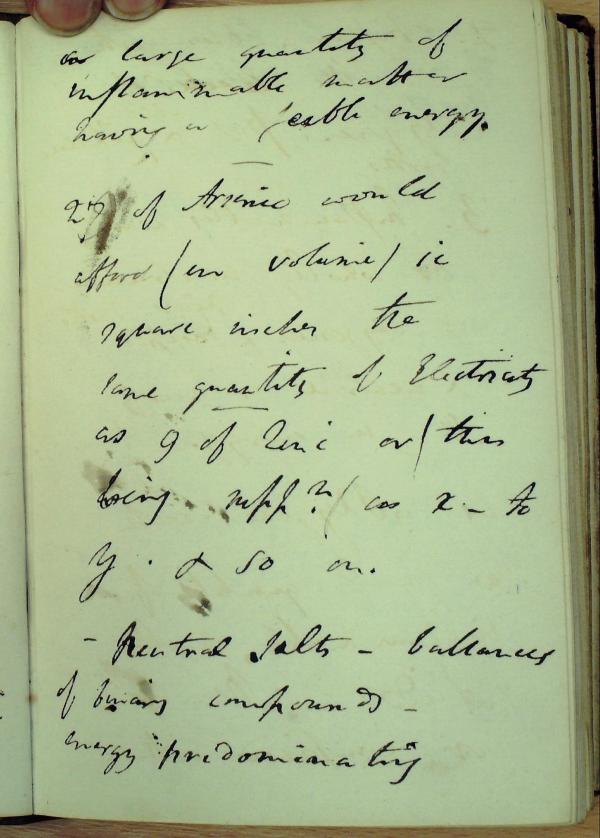 or large quantity of
inflammable matter
having a feeble energy.
27 of Arsenic would
afford (in volume) ie
square inches the
same quantity of Electricity
as 9 of Zinc or (this
being supp.n) as x - to
y. & so on.
- Neutral Salts - ballances
of binary compounds -
energy predominating